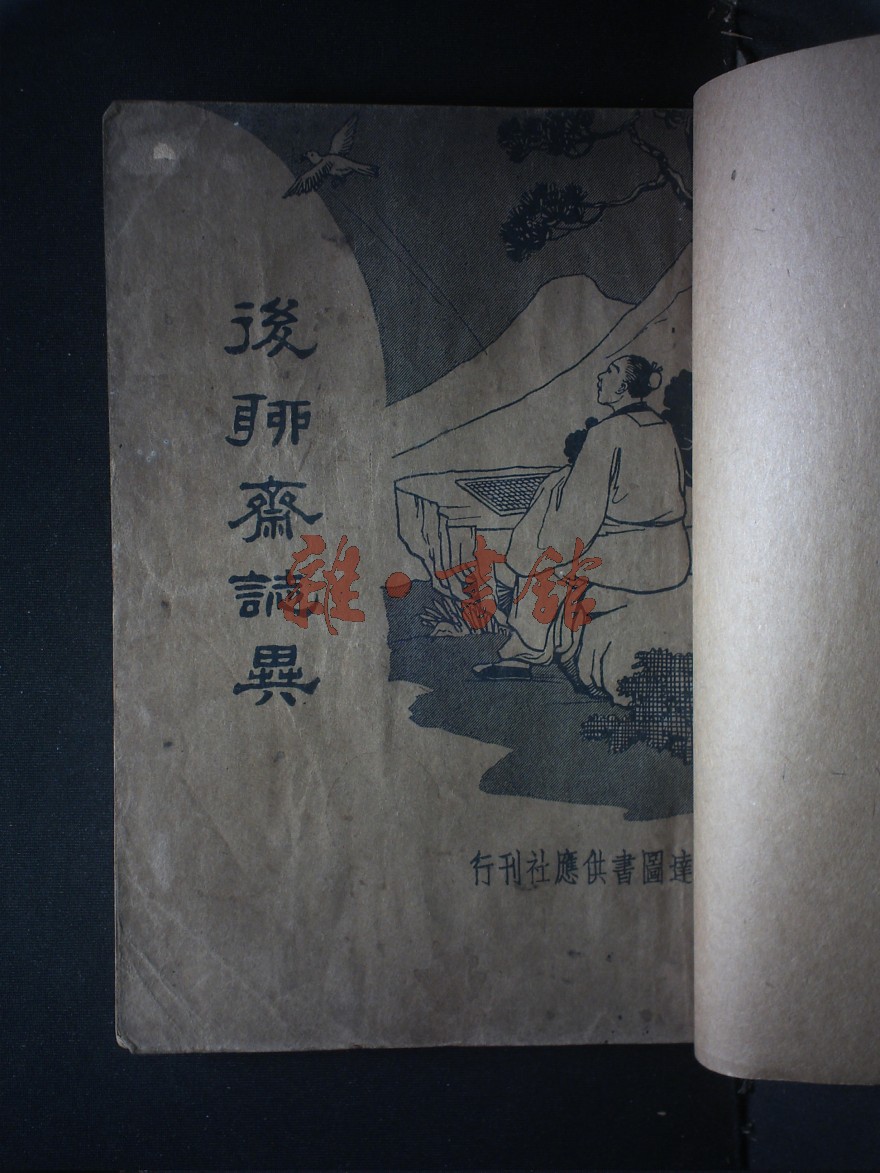 後聊齋誌異
達圖書供應社刊行
雜·書館